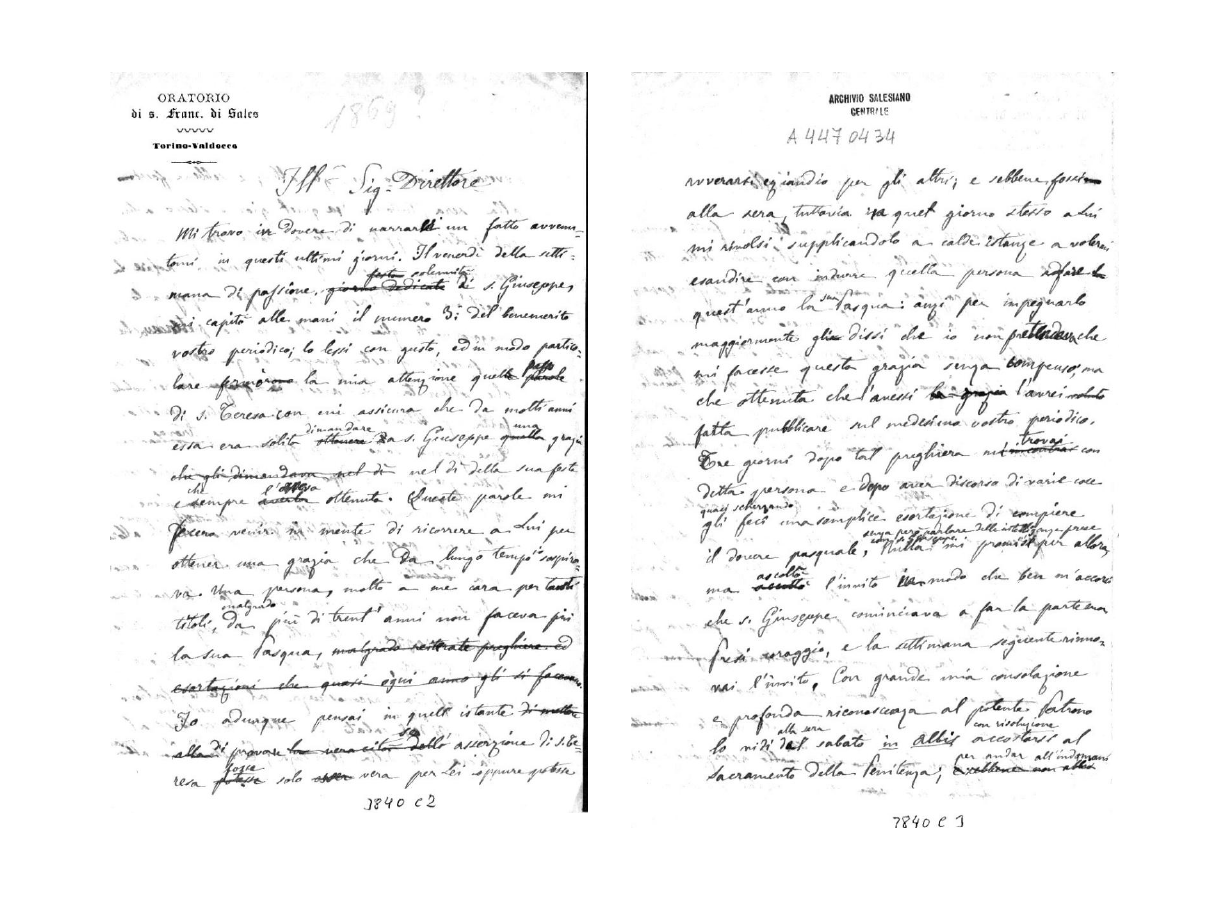 ORATORIO
di s. Franc. di Sales
Torino-Valdocco
1869?
Ill. Sig. Direttore
Mi trovo in dovere di narrarle un fatto avvenu-
tomi in questi ultimi giorni. Il venerdì della setti-
festa solennità
mana di passione, giorno dedicato di s. Giuseppe,
mi capitò alle mani il numero 3: del benemerito
vostro periodico; lo lessi con gusto, ed in modo partico-
passo
lare fermarono la mia attenzione quelle parole
di s. Teresa con cui assicura che da molti anni
dimandare una
essa era solita ottenere da s. Giuseppe quella grazia
che gli dimandava nel dì nel dì della sua festa
che l'avea
e sempre ottenuta. Queste parole mi
fecero venire in mente di ricorrere a Lui per
ottener una grazia che da lungo tempo sospira-
va. Una persona, molto a me cara per tanti
malgrado
titoli, da più di trent'anni non faceva più
la sua Pasqua, malgrado reiterate preghiere ed
esortazioni che quasi ogni anno gli si facevano.
Io adunque pensai in quell'istante di mettere
se
alla di provare la veracità dell' asserzione di s. Te-
fosse
resa potesse solo vera per Lei oppure potesse
3840 C2
ARCHIVIO SALESIANO
CENTRALE
A 4470434
avverarsi eziandio per gli altri; e sebbene fossimo
alla sera, tuttavia in quel giorno stesso a Lui
mi rivolsi supplicandolo a calde istanze a volermi
esaudire con indurre quella persona a fare
sua
quest'anno la Pasqua: anzi per impegnarlo
maggiormente gli dissi che io non che
mi facesse questa grazia senza compenso; ma
che ottenuta che l'avessi la grazia l'avrei
fatta pubblicare sul medesimo vostro periodico.
trovai
Tre giorni dopo tal preghiera m'incontrai con
detta persona e dopo aver discorso di varie cose
quasi scherzando
gli feci una semplice esortazione di compiere
il dovere pasquale, Nulla mi promise per allora,
ascoltò
ma l'invito in modo che ben m'accorsi
che s. Giuseppe cominciava a far la parte sua
Presi coraggio, e la settimana seguente rinno-
vai l'invito, Con grande mia consolazione
e profonda riconoscenza al potente Patrono
alla sera con risoluzione
lo vidi dal sabato in Albis accostarsi al
per andar all'indomani
Sacramento della Penitenza; E sebbene non abbia
3840 C3